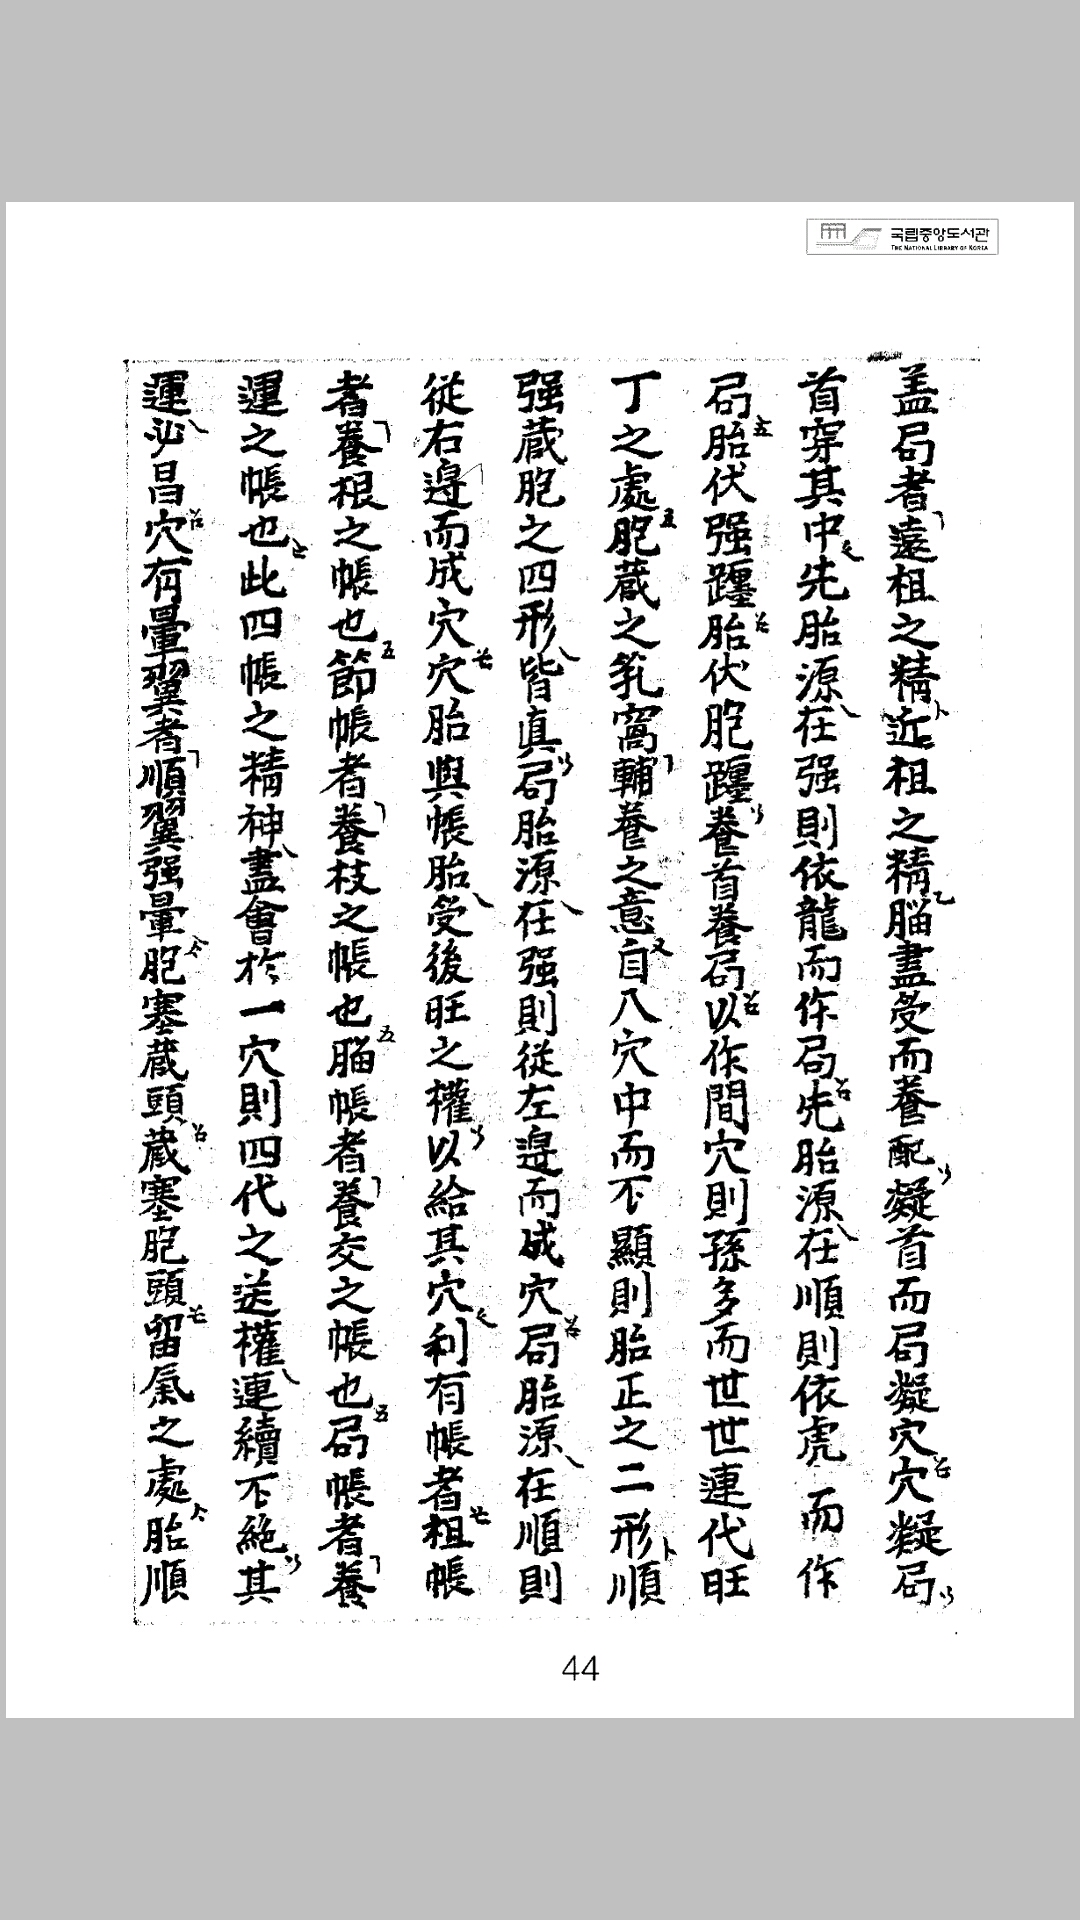 국립중앙도서관
THE NATIONAL LIBRARY OF KOREA
盖局者遠祖之精近祖之精腦盡受而養配凝首而局凝穴穴凝局
首穿其中先胎源在强則依龍而作局先胎源在順則依虎而作
局胎伏强躔胎伏胞躔養首養局以作間穴則孫多而世世連代旺
丁之處胞蔵之乳窩輔養之意自八穴中而不顯則胎正之二形順
强蔵胞之四形皆真局胎源在强則從左邉而成穴局胎源在順則
從右邉而成穴穴胎與帳胎受後旺之權以給其穴利有帳者祖帳
者養根之帳也節帳者養枝之帳也腦帳者養交之帳也局帳者養
運之帳也此四帳之精神盡會於一穴則四代之送權連續不絶其
運必昌穴有暈翼者順翼强暈胞塞蔵頭蔵塞胞頭留氣之處胎順
44